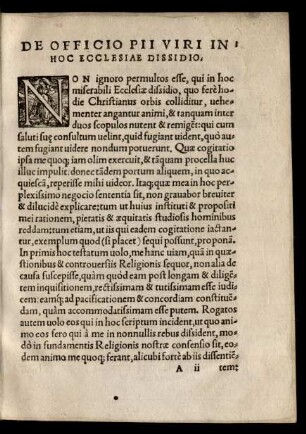 DE OFFICIO PII VIRI IN
HOC ECCLESIAE DISSIDIO.
NON ignoro permultos esse, qui in hoc
miserabili Ecclesiæ dissidio, quo ferè ho=
die Christianus orbis colliditur, uehe=
menter angantur animi, & tanquam inter
duos scopulos nutent & remigẽt: qui cum
saluti suę consultum uelint, quid fugiant uident, quò au
tem fugiant uidere nondum potuerunt. Quæ cogitatio
ipsa me quoq; iam olim exercuit, & tãquam procella huc
illuc impulit: donec tãdem portum aliquem, in quo ac=
quiescã, reperisse mihi uideor. Itaq; quæ mea in hoc per=
plexissimo negocio sententia sit, non grauabor breuiter
& dilucidè explicare: tum ut huius instituti & propositi
mei rationem, pietatis & æquitatis studiosis hominibus
reddam: tum etiam, ut iis qui eadem cogitatione iactan=
tur, exemplum quod (si placet) sequi possunt, proponã.
In primis hoc testatum uolo, me hanc uiam, quã in quæ=
stionibus & controuersiis Religionis sequor, non alia de
causa suscepisse, quàm quòd eam post longam & diligẽ=
tem inquisitionem, rectissimam et tutissimam esse iudi=
cem: eamq; ad pacificationem & concordiam constituẽ=
dam, quàm accommodatissimam esse putem. Rogatos
autem uolo eos qui in hoc scriptum incident, ut quo ani=
mo eos fero qui à me in nonnullis rebus dissident, mo=
dò in fundamentis Religionis nostræ consensio sit, eo=
dem animo me quoq; ferant, alicubi fortè ab iis dissentiẽ=
A ii
tem: